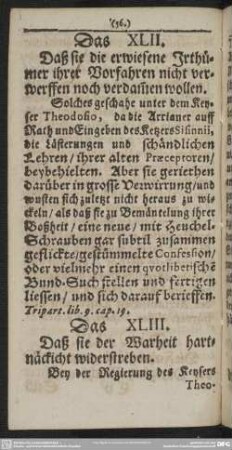 (56.)
Das XLII.
Daß sie die erwiesene Irthü-
mer ihrer Vorfahren nicht ver-
werffen noch verdam̃en wollen.
Solches geschahe unter dem Key-
ser Theodosio, da die Arrianer auff
Rath und Eingeben des Ketzers Sisinnii,
die Lästerungen und schändlichen
Lehren / ihrer alten Præceptoren /
beybehielten. Aber sie geriethen
darüber in grosse Verwirrung / und
wusten sich zuletzt nicht heraus zu wi-
ckeln / als daß sie zu Bemäntelung ihrer
Boßheit / eine neue / mit Heuchel-
Schrauben gar subtil zusammen
geflickte / gestümmelte Confession /
oder vielmehr einen qvotlibetische
Bund-Buch stellen und fertigen
liessen / und sich darauf berieffen.
Tripart. lib. 9. cap. 19.
Das XLIII.
Daß sie der Warheit hart-
näckicht widerstreben.
Bey der Regierung des Keysers
Theo-